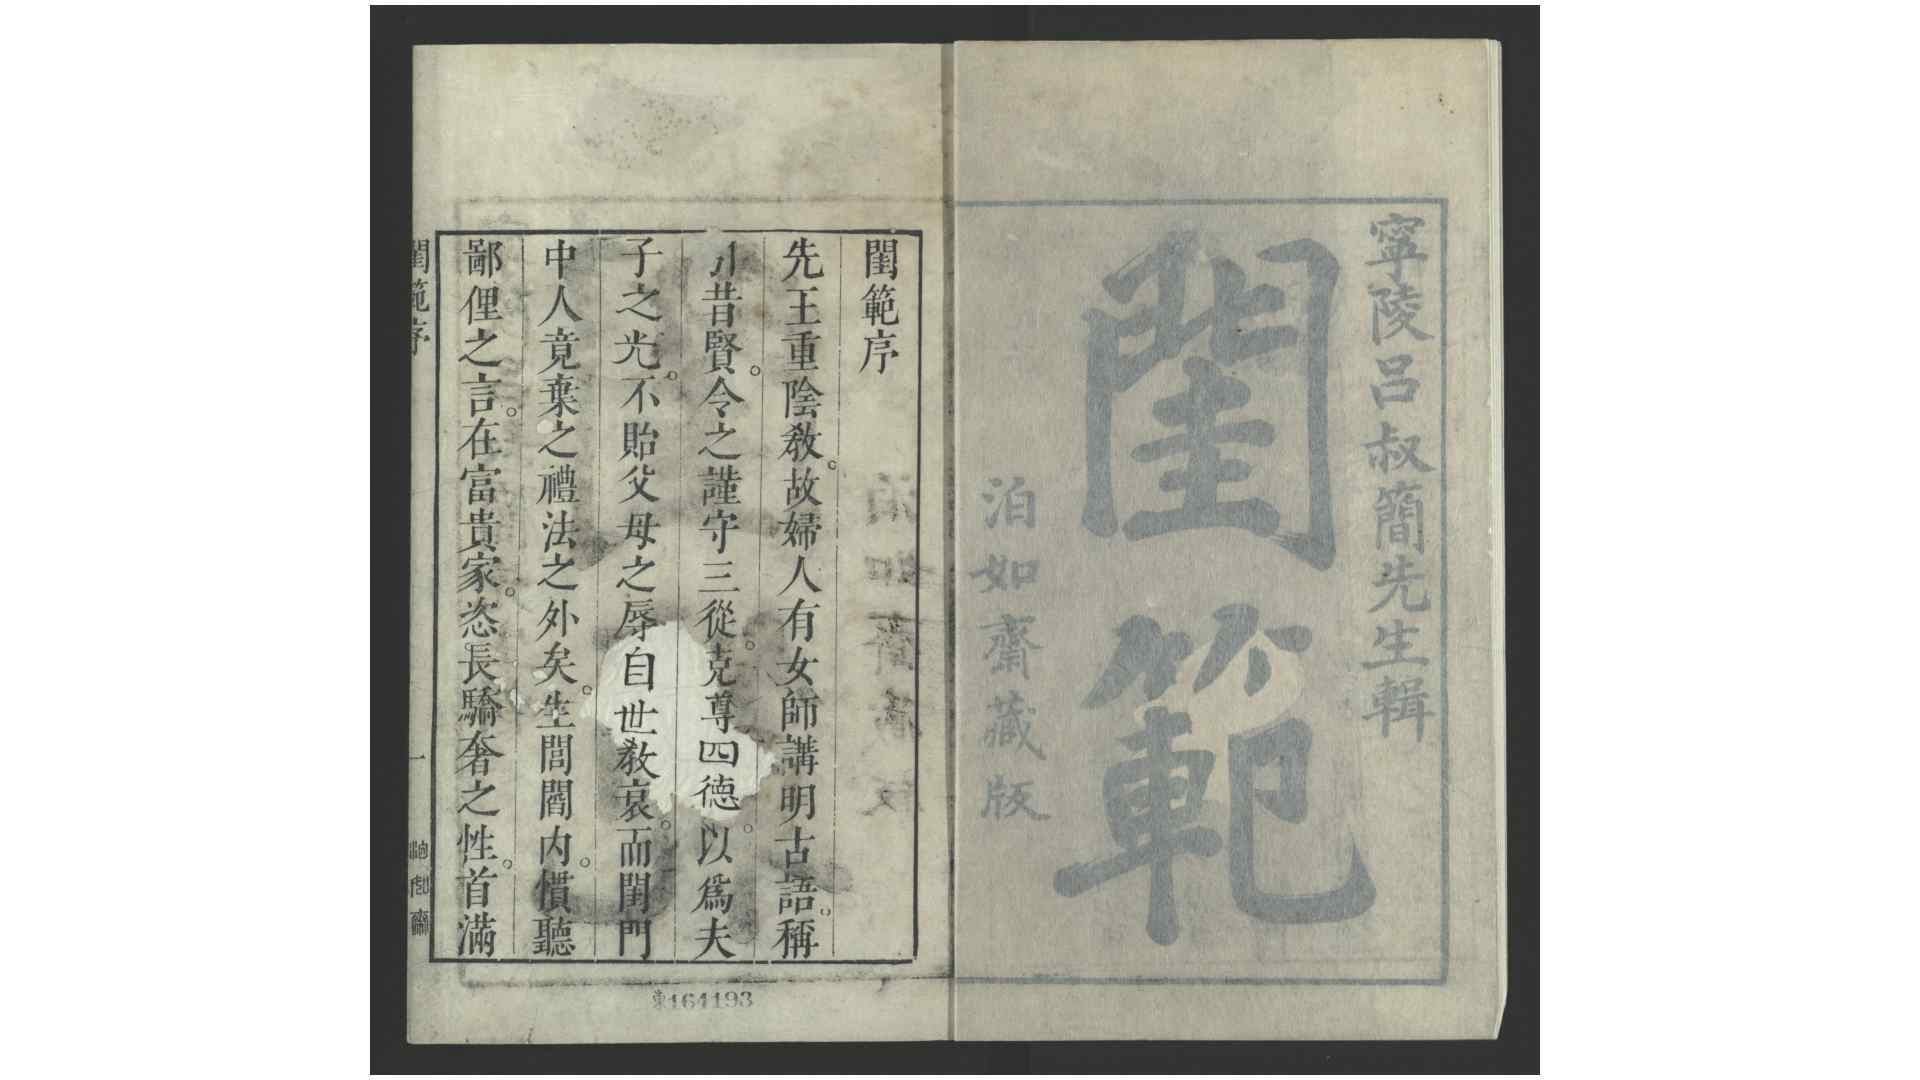 寧陵呂叔簡先生輯
閨範
泊如齋藏版
閨範序
先王重陰教。故婦人有女師講明古語。稱
引昔賢。令之謹守三從。克尊四德。以爲夫
子之光。不貽父母之辱自世教衰。而閨門
中人竟棄之禮法之外矣。生閭閻內。慣聽
鄙俚之言。在富貴家。恣長驕奢之性。首滿
閨範序
一
泊如齋
東164193